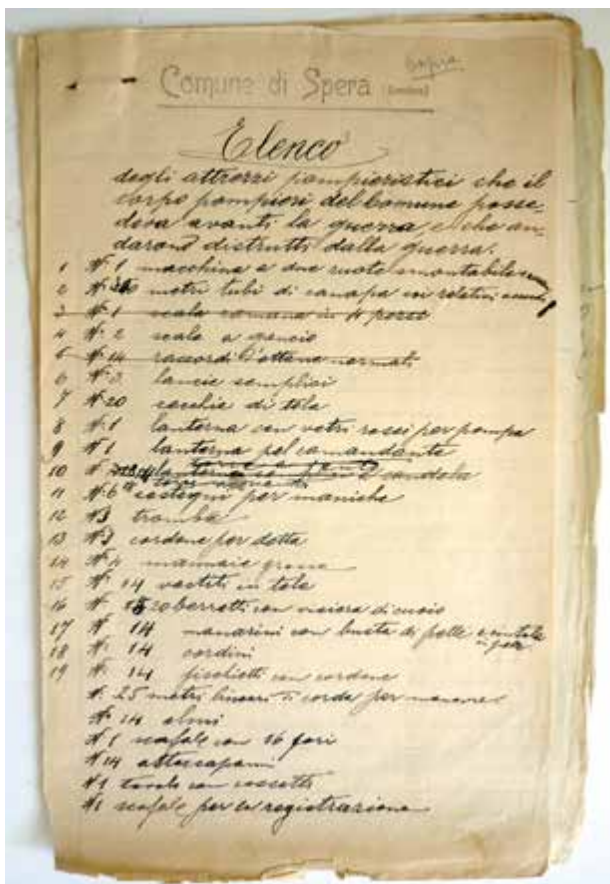 Copia
Comune di Spera
Elenco
degli attrezzi pompieristici che il
corpo pompieri del Comune posse-
deva avanti la guerra, e che an-
darono distrutti dalla guerra.
1 N. 1 macchina a due ruote smontabile
2 N. metri tubi di canapa coi relativi
3 N. 1 scala romana in 4 pezzi
4 N. 2 scale a gancio
5 N. 14 raccordi d'ottone normali
6 N. 3 lancie semplici
7 N. 20 secchie di tela
8 N. 1 lanterna con vetri rossi per pompa
9 N. 1 lanterna pel comandante
10 N. candela
11 N. 6 sostegni per maniche
12 N. 3 trombe
13 N. 3 cordone per detta
14 N. 4 mannaie grosse
15 N. 14 vestiti in tela
16 N. 20 berretti con visiera di cuoio
17 N. 14 manarini con busta di pelle
18 N. 14 cordini
19 N. 14 fischietti con cordone
N. 25 metri lineari di corda per manovre
N. 14 elmi
N. 1 scafale con 16 fori
N. 14 attaccapanni
N. 1 tavolo con cassetti
N. 1 scafale per la registrazione